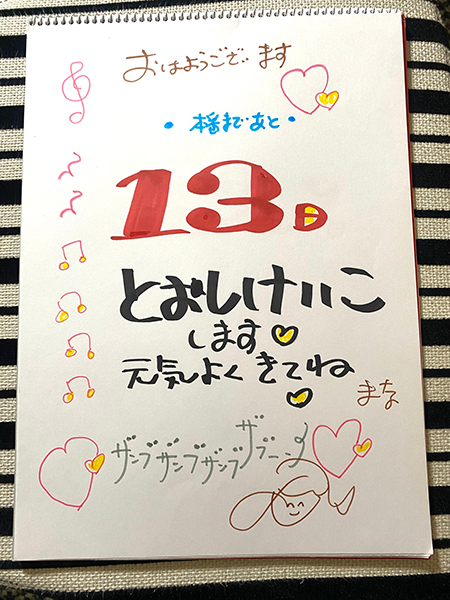 おはようございます
• 本番まであと •
13日
とおしけいこ
します
元気よくきてね
まな
ザンブザンブザンブザブーン